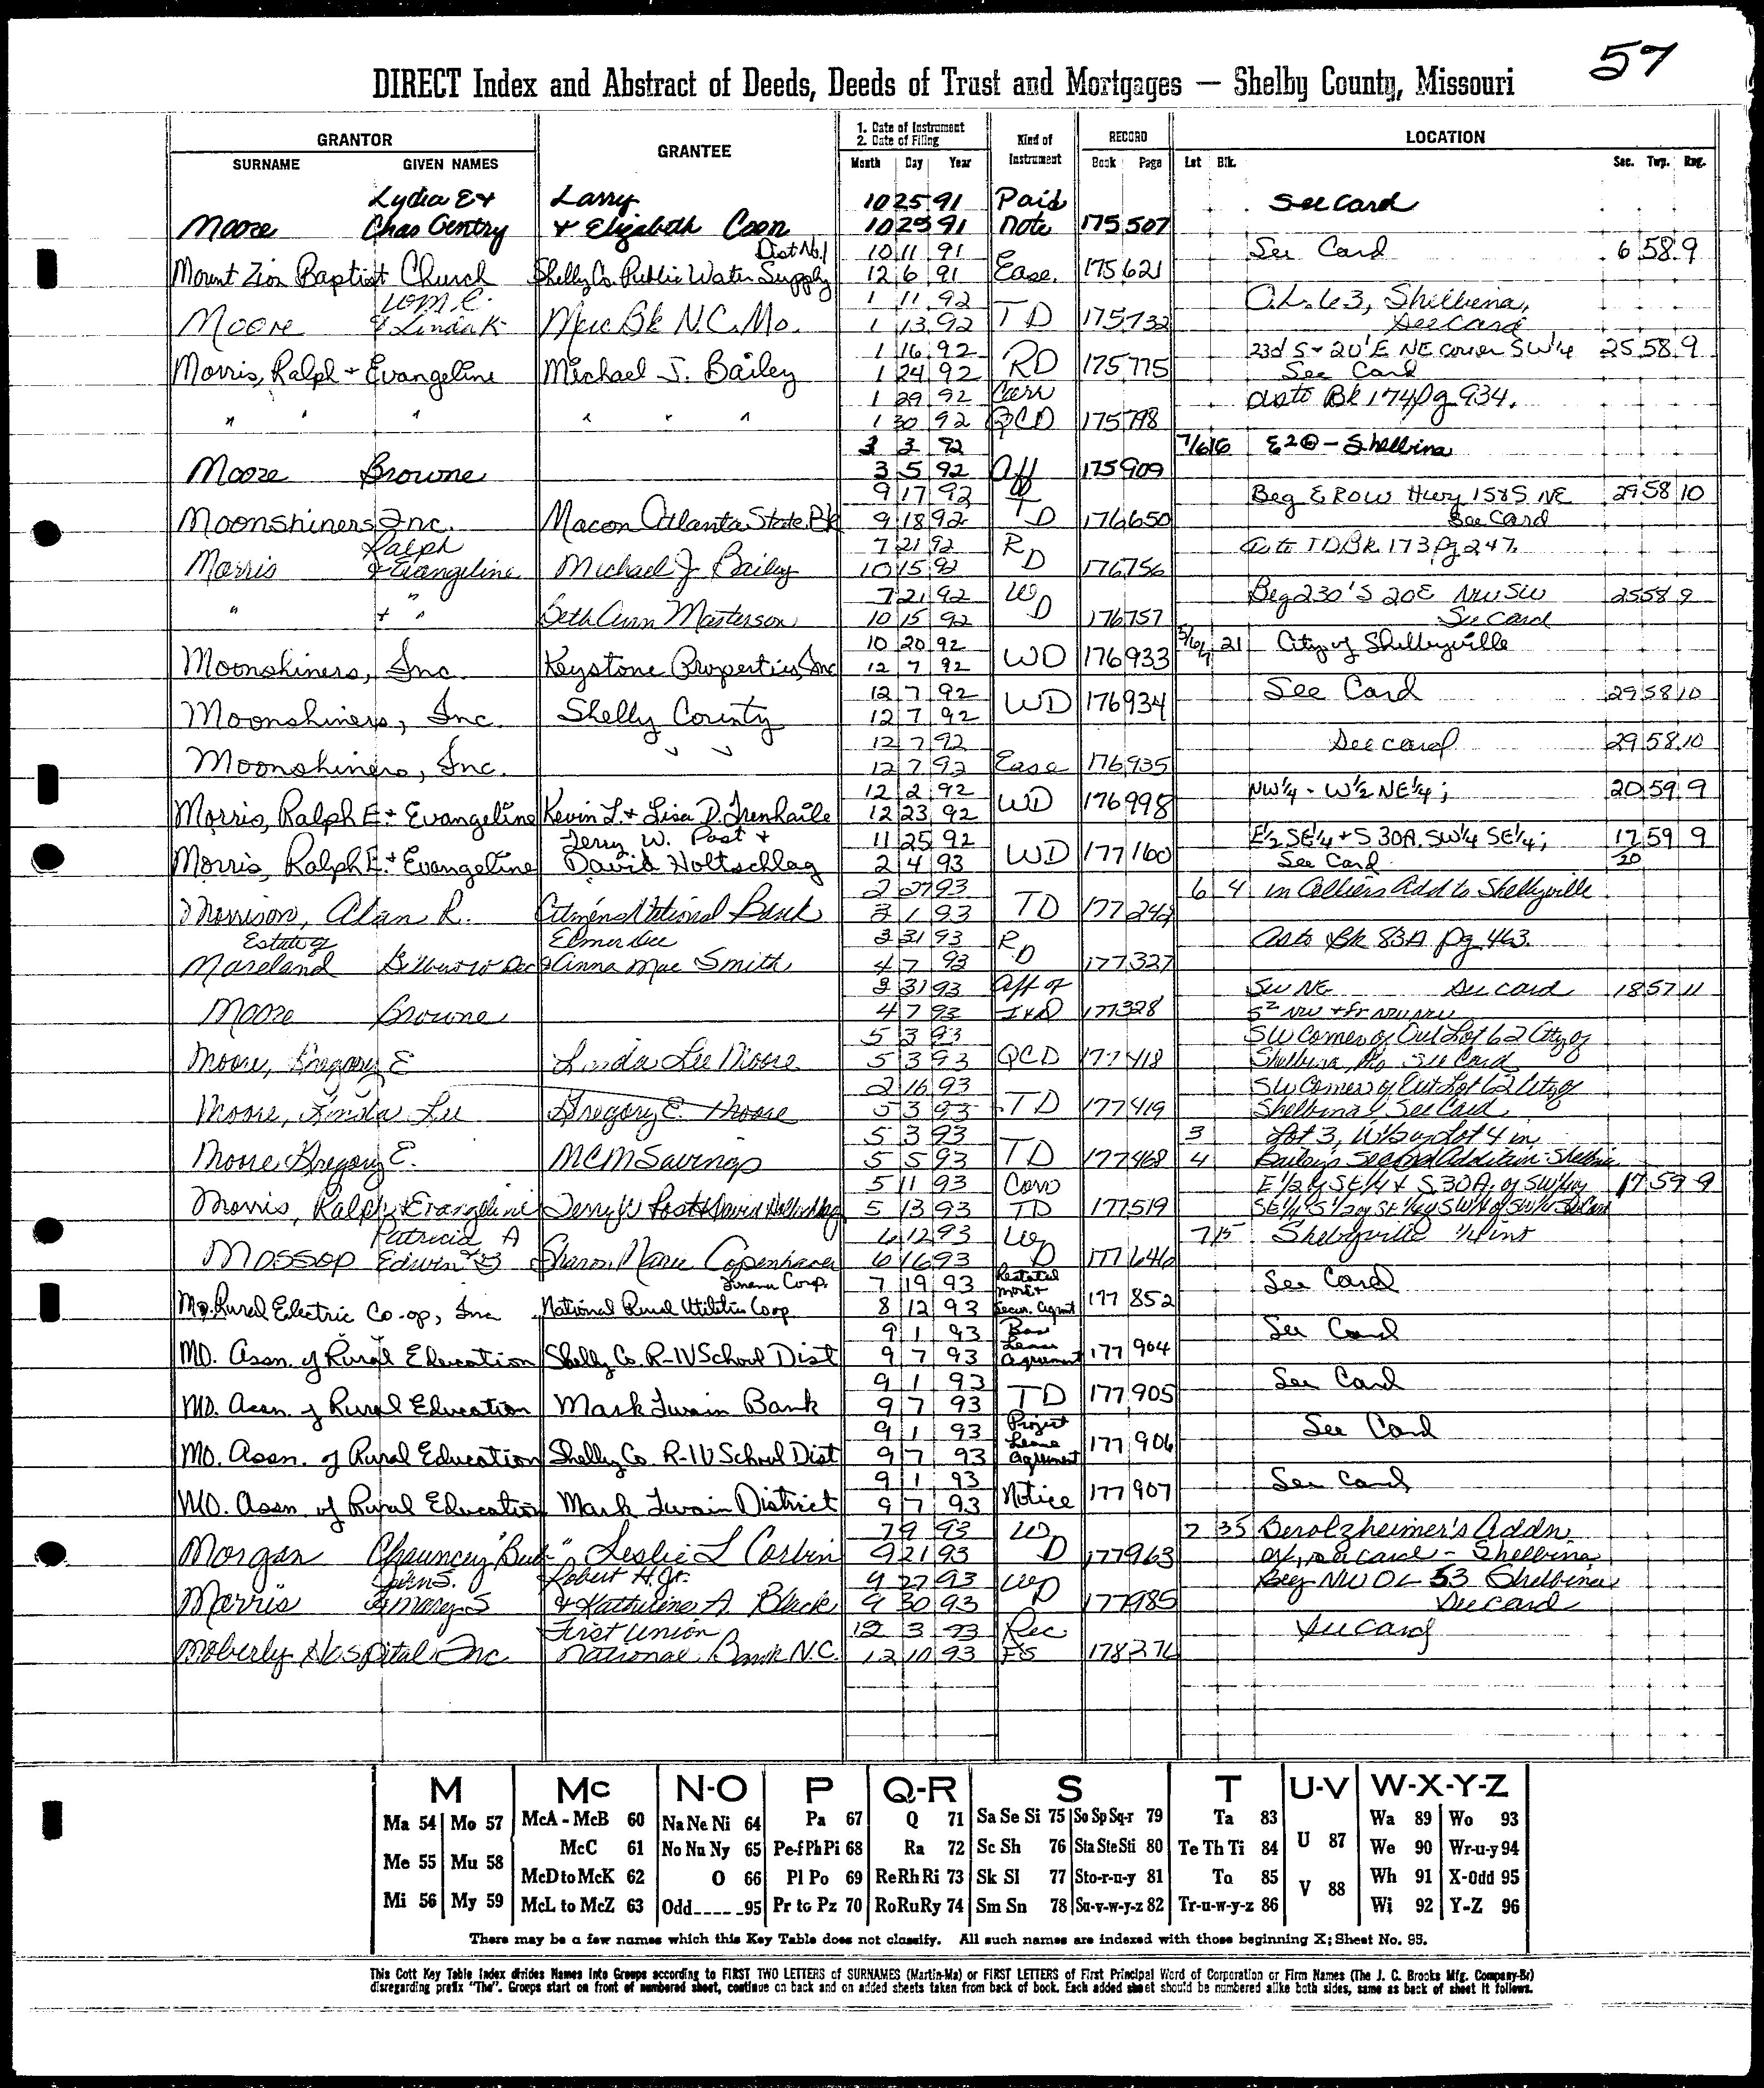 57
DIRECT Index and Abstract of Deeds, Deeds of Trust and Mortgages — Shelby County, Missouri
GRANTOR GRANTEE 1. Date of Instrument 2. Date of Filing Kind of Instrument RECORD LOCATION
SURNAME GIVEN NAMES Month Day Year Book Page Lot Blk. Sec. Twp. Rng.
Lydia E + Larry 10 25 91 Paid See Card
Moore Chas Gentry + Elizabeth Coon 10 25 91 Note 175 507
Dist No. 1 10 11 91 See Card 6 58 9
Mount Zion Baptist Church Shelby Co. Public Water Supply 12 6 91 Ease. 175 621
Wm. C. 1 11 92 O.L. 63, Shelbina,
Moore & Linda K Merc Bk N.C. Mo. 1 13 92 TD 175 732 See Card
1 16 92 23d S + 20' E NE corner SW¼ 25 58 9
Morris, Ralph + Evangeline Michael J. Bailey 1 24 92 RD 175 775 See Card
1 29 92 Corr as to Bk 174 pg 934.
" " " " " " 1 30 92 QCD 175 798
3 3 92 7/6 16 E 20 - Shelbina
Moore Browne 3 5 92 Aff 175 909
9 17 92 Beg E ROW Hwy 15 & S NE 29 58 10
Moonshiners Inc. Macon Atlanta State Bk 9 18 92 TD 176 650 See Card
Ralph 7 21 92 as to TD Bk 173 Pg 247.
Morris & Evangeline Michael J. Bailey 10 15 92 RD 176 756
7 21 92 Beg 230' S 20 E NW SW 25 58 9
" + " Beth Ann Masterson 10 15 92 WD 176 757 See Card
10 20 92 5/6/7 21 City of Shelbyville
Moonshiners, Inc. Keystone Properties, Inc 12 7 92 WD 176 933
12 7 92 See Card 29 58 10
Moonshiners, Inc. Shelby County 12 7 92 WD 176 934
12 7 92 See Card 29 58 10
Moonshiners, Inc. " " 12 7 92 Ease 176 935
12 2 92 NW¼ - W½ NE¼; 20 59 9
Morris, Ralph E. + Evangeline Kevin L. + Lisa D. Trenhaile 12 23 92 WD 176 998
Terry W. Post + 11 25 92 E½ SE¼ + S 30A. SW¼ SE¼; 17 59 9
Morris, Ralph E. + Evangeline David Holtschlag 2 4 93 WD 177 160 See Card 20
2 27 93 6 4 in Colliers Add to Shelbyville
Morrison, Alan R. Citizens National Bank 3 1 93 TD 177 242
Estate of Elmer Dee 3 31 93 as to Bk 83A pg 463.
Moreland Anna Mae Smith 4 7 93 RD 177 327
3 31 93 Aff of SW NE See Card 18 57 11
Moore Browne 4 7 93 177 328
5 3 93 SW Corner of Out Lot 62 City of
Moore, Gregory E Linda Lee Moore 5 3 93 QCD 177 418 Shelbina, Mo See Card
2 16 93 SW Corner of Out Lot 62 City of
Moore, Linda Lee Gregory E. Moore 5 3 93 TD 177 419 Shelbina See Card
5 3 93 3 Lot 3, W½ of Lot 4 in
Moore, Gregory E. MCM Savings 5 5 93 TD 177 468 4 Bailey's Second Addition Shelbina
5 11 93 Corr E 1/2 of SE 1/4 & S 30A. of SW¼ 17 59 9
Morris, Ralph & Evangeline Terry W Post & David Holtschlag 5 13 93 TD 177 519
Patricia A 6 12 93 7 15 Shelbyville
Mossop Edwin Sharon Marie Copenhaver 6 16 93 WD 177 646
Finance Corp. 7 19 93 Restated Mort + See Card
Mo. Rural Electric Co-op, Inc National Rural Utilities Coop 8 12 93 Secur. Agmt 177 852
9 1 93 Base See Card
MO. Assn. of Rural Education Shelby Co. R-IV School Dist 9 7 93 Lease Agreement 177 904
9 1 93 See Card
MO. Assn. of Rural Education Mark Twain Bank 9 7 93 TD 177 905
9 1 93 Project See Card
MO. Assn. of Rural Education Shelby Co. R-IV School Dist 9 7 93 Lease Agreement 177 906
9 1 93 See Card
MO. Assn. of Rural Education Mark Twain District 9 7 93 Notice 177 907
7 9 93 2 35 Berolzheimer's Addn
Morgan Chauncey "Bud" Leslie L Corbin 9 21 93 WD 177 963 See card - Shelbina
John S. Robert H. Jr. 9 27 93 Beg NW OL 53 Shelbina
Morris & Mary S & Katherine A Black 9 30 93 WD 177 985 See Card
First Union 12 3 93 Rec See Card
Moberly Hospital, Inc National Bank N.C. 12 10 93 FS 178 276
M Mc N-O P Q-R S T U-V W-X-Y-Z
Ma 54 Mo 57 McA - McB 60 Na Ne Ni 64 Pa 67 Q 71 Sa Se Si 75 So Sp Sq-r 79 Ta 83 Wa 89 Wo 93
McC 61 No Nu Ny 65 Pe-f Ph Pi 68 Ra 72 Sc Sh 76 Sta Ste Sti 80 Te Th Ti 84 U 87 We 90 Wr-u-y 94
Me 55 Mu 58 McD to McK 62 O 66 Pl Po 69 Re Rh Ri 73 Sk Sl 77 Sto-r-u-y 81 To 85 V 88 Wh 91 X-Odd 95
Mi 56 My 59 McL to McZ 63 Odd 95 Pr to Pz 70 Ro Ru Ry 74 Sm Sn 78 Su-v-w-y-z 82 Tr-u-w-y-z 86 Wi 92 Y-Z 96
There may be a few names which this Key Table does not classify. All such names are indexed with those beginning X; Sheet No. 95.
This Cott Key Table Index divides Names into Groups according to FIRST TWO LETTERS of SURNAMES (Martin-Ma) or FIRST LETTERS of First Principal Word of Corporation or Firm Names (The J. C. Brooks Mfg. Company-Br)
disregarding prefix "The". Groups start on front of numbered sheet, continue on back and on added sheets taken from back of book. Each added sheet should be numbered alike both sides, same as back of sheet it follows.